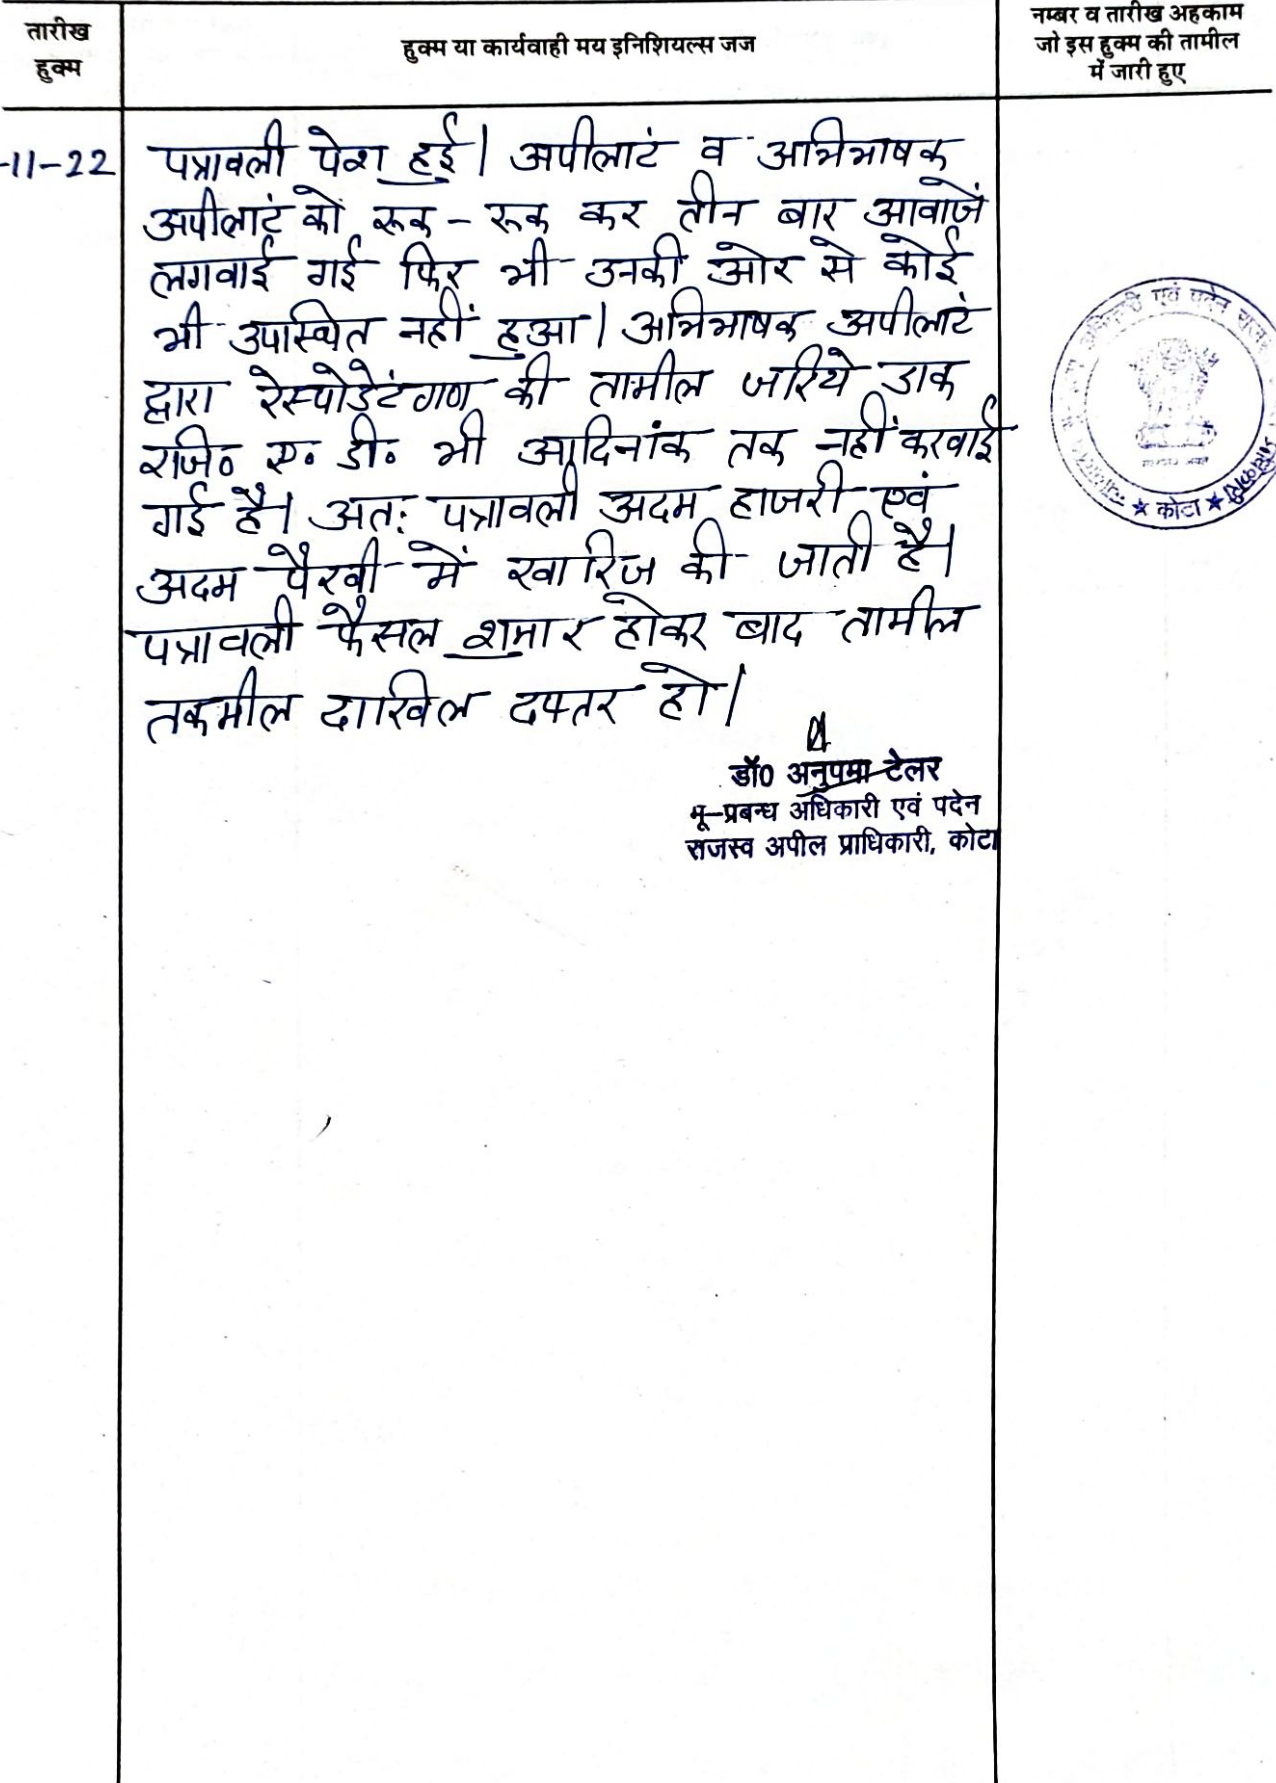 तारीख
हुक्म
हुक्म या कार्यवाही मय इनिशियल्स जज
नम्बर व तारीख अहकाम
जो इस हुक्म की तामील
में जारी हुए
-11-22
पत्रावली पेश हुई। अपीलांट व अभिभाषक
अपीलांट को रूक - रूक कर तीन बार आवाजें
लगवाई गई फिर भी उनकी ओर से कोई
भी उपस्थित नहीं हुआ। अभिभाषक अपीलांट
द्वारा रेस्पोडेंटगण की तामील जरिये डाक
रजि० ए० डी० भी आदिनांक तक नहीं करवाई
गई है। अतः पत्रावली अदम हाजरी एवं
अदम पैरवी में खारिज की जाती है।
पत्रावली फैसल शुमार होकर बाद तामील
तकमील दाखिल दफ्तर हो।
डॉ0 अनुपमा टेलर
भू-प्रबन्ध अधिकारी एवं पदेन
राजस्व अपील प्राधिकारी, कोटा
एवं पदेन
★ कोटा ★